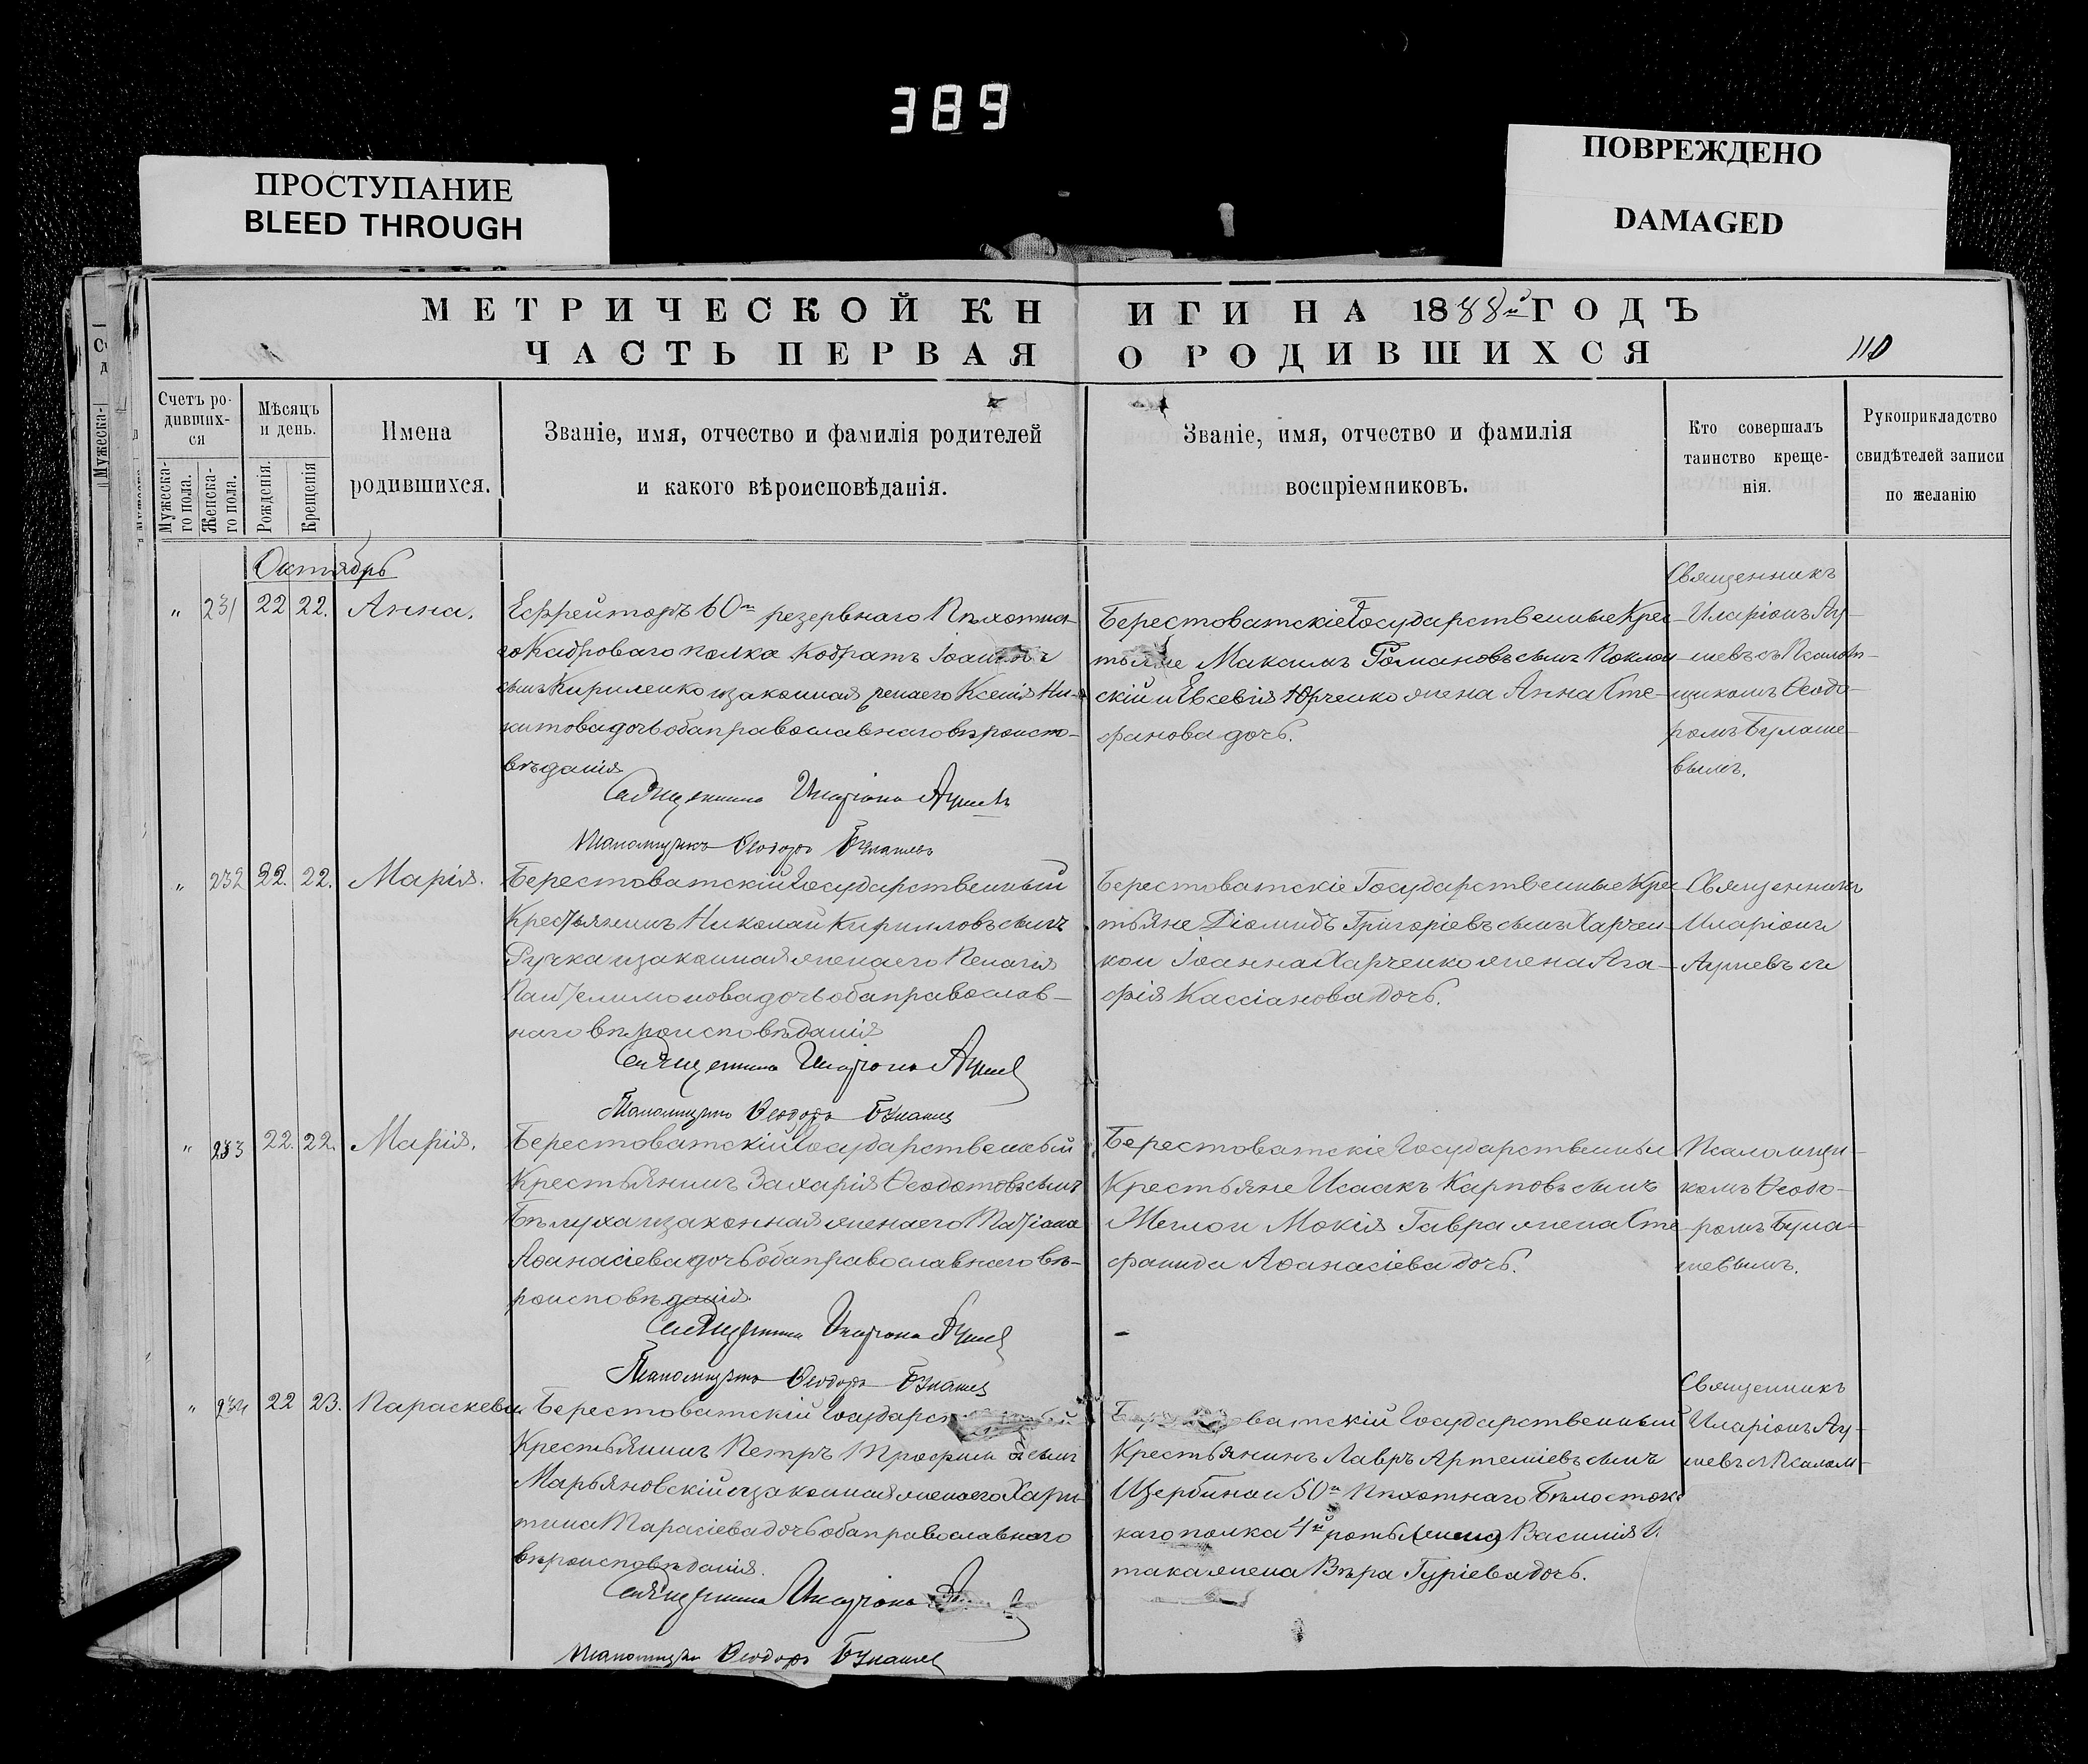 389
ПРОСТУПАНИЕ
BLEED THROUGH
ПОВРЕЖДЕНО
DAMAGED
МЕТРИЧЕСКОЙ КНИГИ НА 1888й ГОДЪ
ЧАСТЬ ПЕРВАЯ О РОДИВШИХСЯ
110
Счетъ родившихся
Мужескаго пола.
Женскаго пола.
Мѣсяцъ и день.
Рожденія.
Крещенія
Имена
родившихся.
Званіе, имя, отчество и фамилія родителей
и какого вѣроисповѣданія.
Званіе, имя, отчество и фамилія
воспріемниковъ.
Кто совершалъ
таинство креще-
нія.
Рукоприкладство
свидѣтелей записи
по желанію
Октябрь
" 231 22 22. Анна.
Ефрейторъ 60го резервнаго Пѣхотна-
го Кадроваго полка Кодратъ Іоанновъ
сынъ Кириленко и законная жена его Ксенія Ни-
китова дочь оба православнаго вѣроиспо-
вѣданія
Священникъ Иларіонъ
Псаломщикъ Ѳеодоръ Булашевъ
Берестоватскіе Государственные Крес-
тьяне Максимъ Романовъ сынъ
и Евсевія Юрченко жена Анна Сте-
фанова дочь.
Священникъ
Иларіонъ
съ Псаломщи-
комъ Ѳеодо-
ромъ Булаше-
вымъ.
" 232 22. 22. Марія.
Берестоватскій Государственный
Крестьянинъ Николай Кирилловъ сынъ
Ручка и законная жена его Пелагія
Пантелимонова дочь оба православ-
наго вѣроисповѣданія
Священникъ Иларіонъ
Псаломщикъ Ѳеодоръ Булашевъ
Берестоватскіе Государственные Крес-
тьяне Діомидъ Григоріевъ сынъ Харчен-
ко и Іоанна Харченко жена Ага-
фія Кассіанова дочь.
Священникъ
Иларіонъ
" 233 22. 22. Марія.
Берестоватскій Государственный
Крестьянинъ Захарія Ѳеодотовъ сынъ
Бѣлуха и законная жена его Татіана
Аѳанасіева дочь оба православнаго вѣ-
роисповѣданія.
Священникъ Иларіонъ
Псаломщикъ Ѳеодоръ Булашевъ
Берестоватскіе Государственные
Крестьяне Исаакъ Карповъ сынъ
и Мокія Гавра жена Сте-
фанида Аѳанасіева дочь.
Псаломщи-
комъ Ѳеодо-
ромъ Була-
шевымъ.
" 234 22 23. Параскева
Берестоватскій Государственный
Крестьянинъ Петръ сынъ
Марьяновскій и законная жена его Хари-
тина Тарасіева дочь оба православнаго
вѣроисповѣданія.
Священникъ Иларіонъ
Псаломщикъ Ѳеодоръ Булашевъ
Берестоватскій Государственный
Крестьянинъ Лавръ Артеміевъ сынъ
Щербина и 50го Пѣхотнаго Бѣлосток-
каго полка 4й роты Василія
жена Вѣра Гуріева дочь.
Священникъ
Иларіонъ